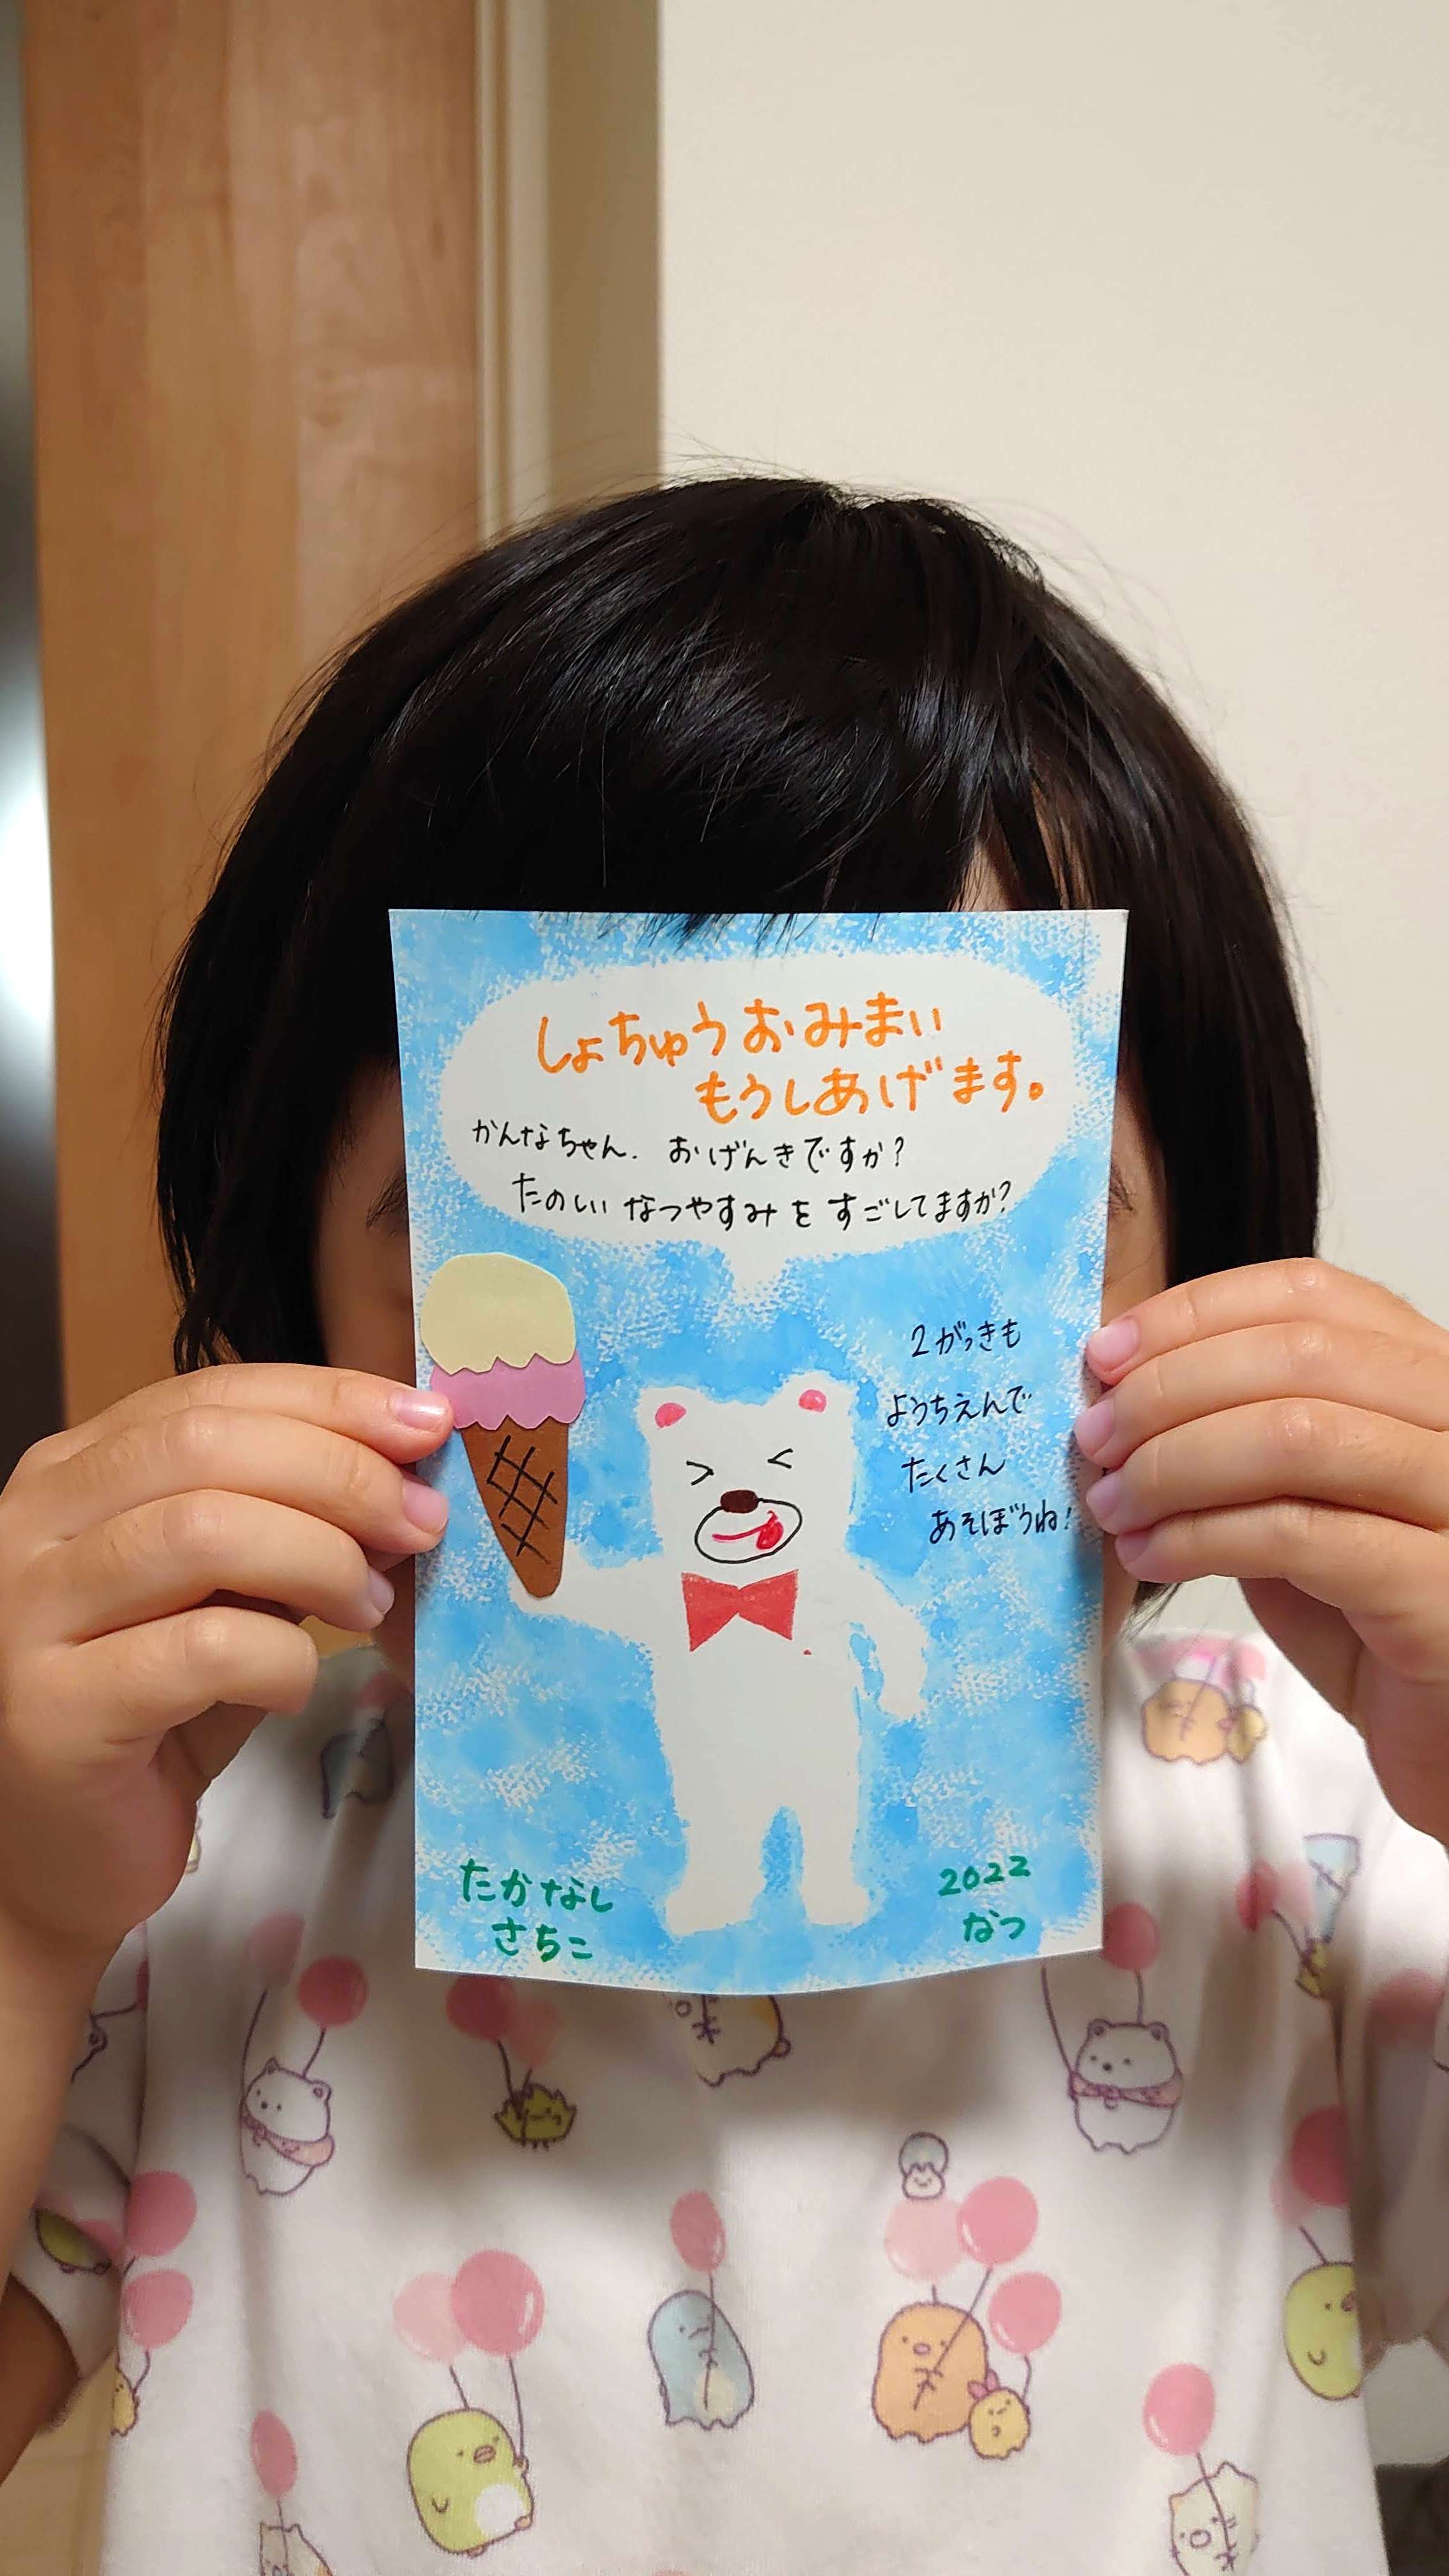 しょちゅうおみまい
もうしあげます。
かんなちゃん. おげんきですか?
たのしい なつやすみ を すごしてますか?
2がっきも
ようちえんで
たくさん
あそぼうね!
たかなし
さちこ
2022
なつ